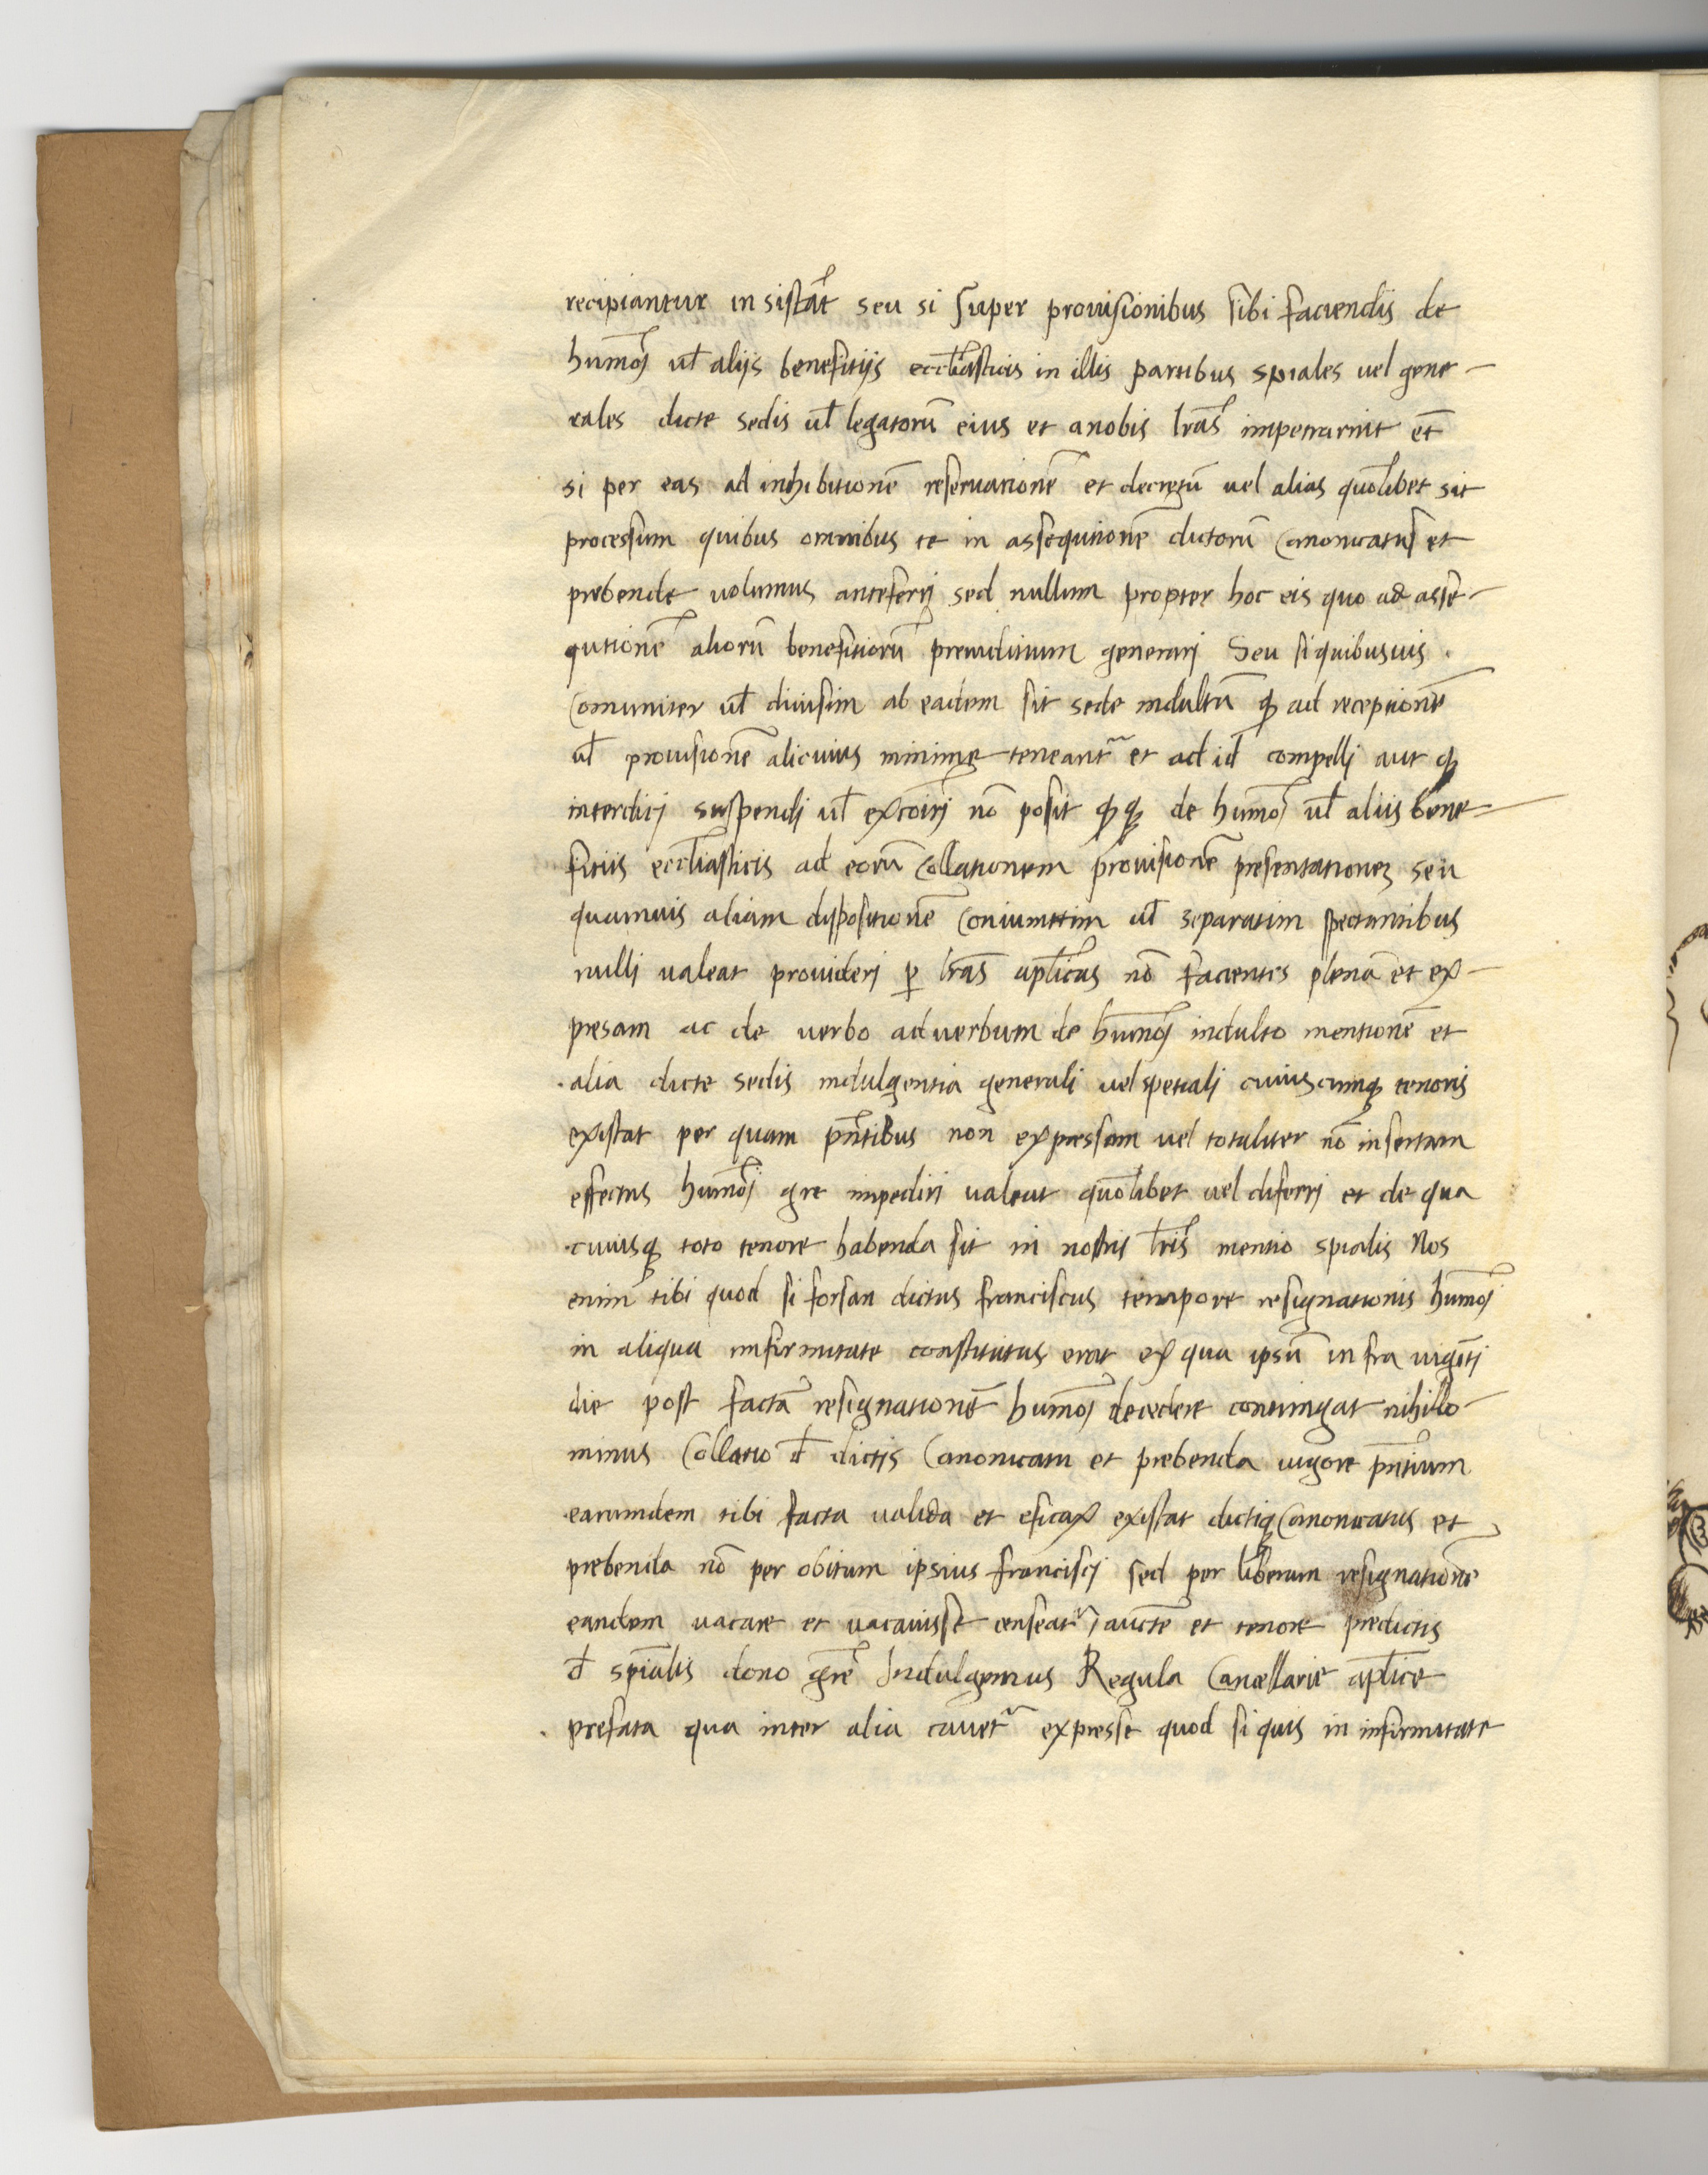 recipiantur in sistāt seu si super prouisionibus sibi faciendis de
humōi ul̄ aliis benefitiis eccl̄iasticis in illis partibus spiales vel gene-
rales dicte sedis ul̄ legatorū eius et anobis lr̄as impetrarint et̄
si per eas ad inhibitionē reseruationē et decretū vel alias quolibet sit
processum quibus omnibus te in assequtionē dictorū Canonicatus et
prebende uolumus anteferrj sed nullum propter hoc eis quo ad asse-
qutionē aliorū benefitiorū preiuditium generarj Seu si quibusuis
Comuniter ul̄ diuisim ab eadem sit sede indultū ꝙ ad receptionē
ul̄ prouisionē alicuius minime teneantʳ et ad id compellj aut ꝙ
interdicj suspendj ul̄ excoīrj nō possit ꝙꝙ de humōi ul̄ aliis bene-
fitiis eccl̄iasticis ad eorū Collationem prouisionē presentationem seu
quamuis aliam dispositionē Coniunctim ul̄ separatim spectantibus
nulli valeat prouiderj ꝑ lr̄as apl̄icas nō facientes plenā et ex-
presam ac de verbo ad verbum de humōi indulto mentionē et
alia dicte sedis indulgentia generali vel spetialj cuiuscumqꝫ tenoris
existat per quam pn̄tibus non expressam vel totaliter nō insertam
effectus humōi gr̄e impediri valeat quolibet vel diferrj et de qua
cuiusqꝫ toto tenore habenda sit in nostris lr̄is mentio spialis Nos
enim tibi quod si forsan dictus franciscus tempore resignationis humōi
in aliqua infirmitate constitutus erat ex qua ipsū infra uigītj
die post factā resignationē humōi decedere contingat nihillo-
minus Collatio đ dictis Canonicatu et prebenda uigore pn̄tium
earumdem tibi facta valida et eficax existat dictiqꝫ Canonicatus et
prebenda nō per obitum ipsius franciscj sed per liberam resignationē
eandem vacare et vacauisse censeatʳ auctē et tenore predictis
đ spēialis dono gr̄e Indulgemus Regula Cancellarie apl̄ice
prefata qua inter alia cauetʳ expresse quod si quis in infirmitate